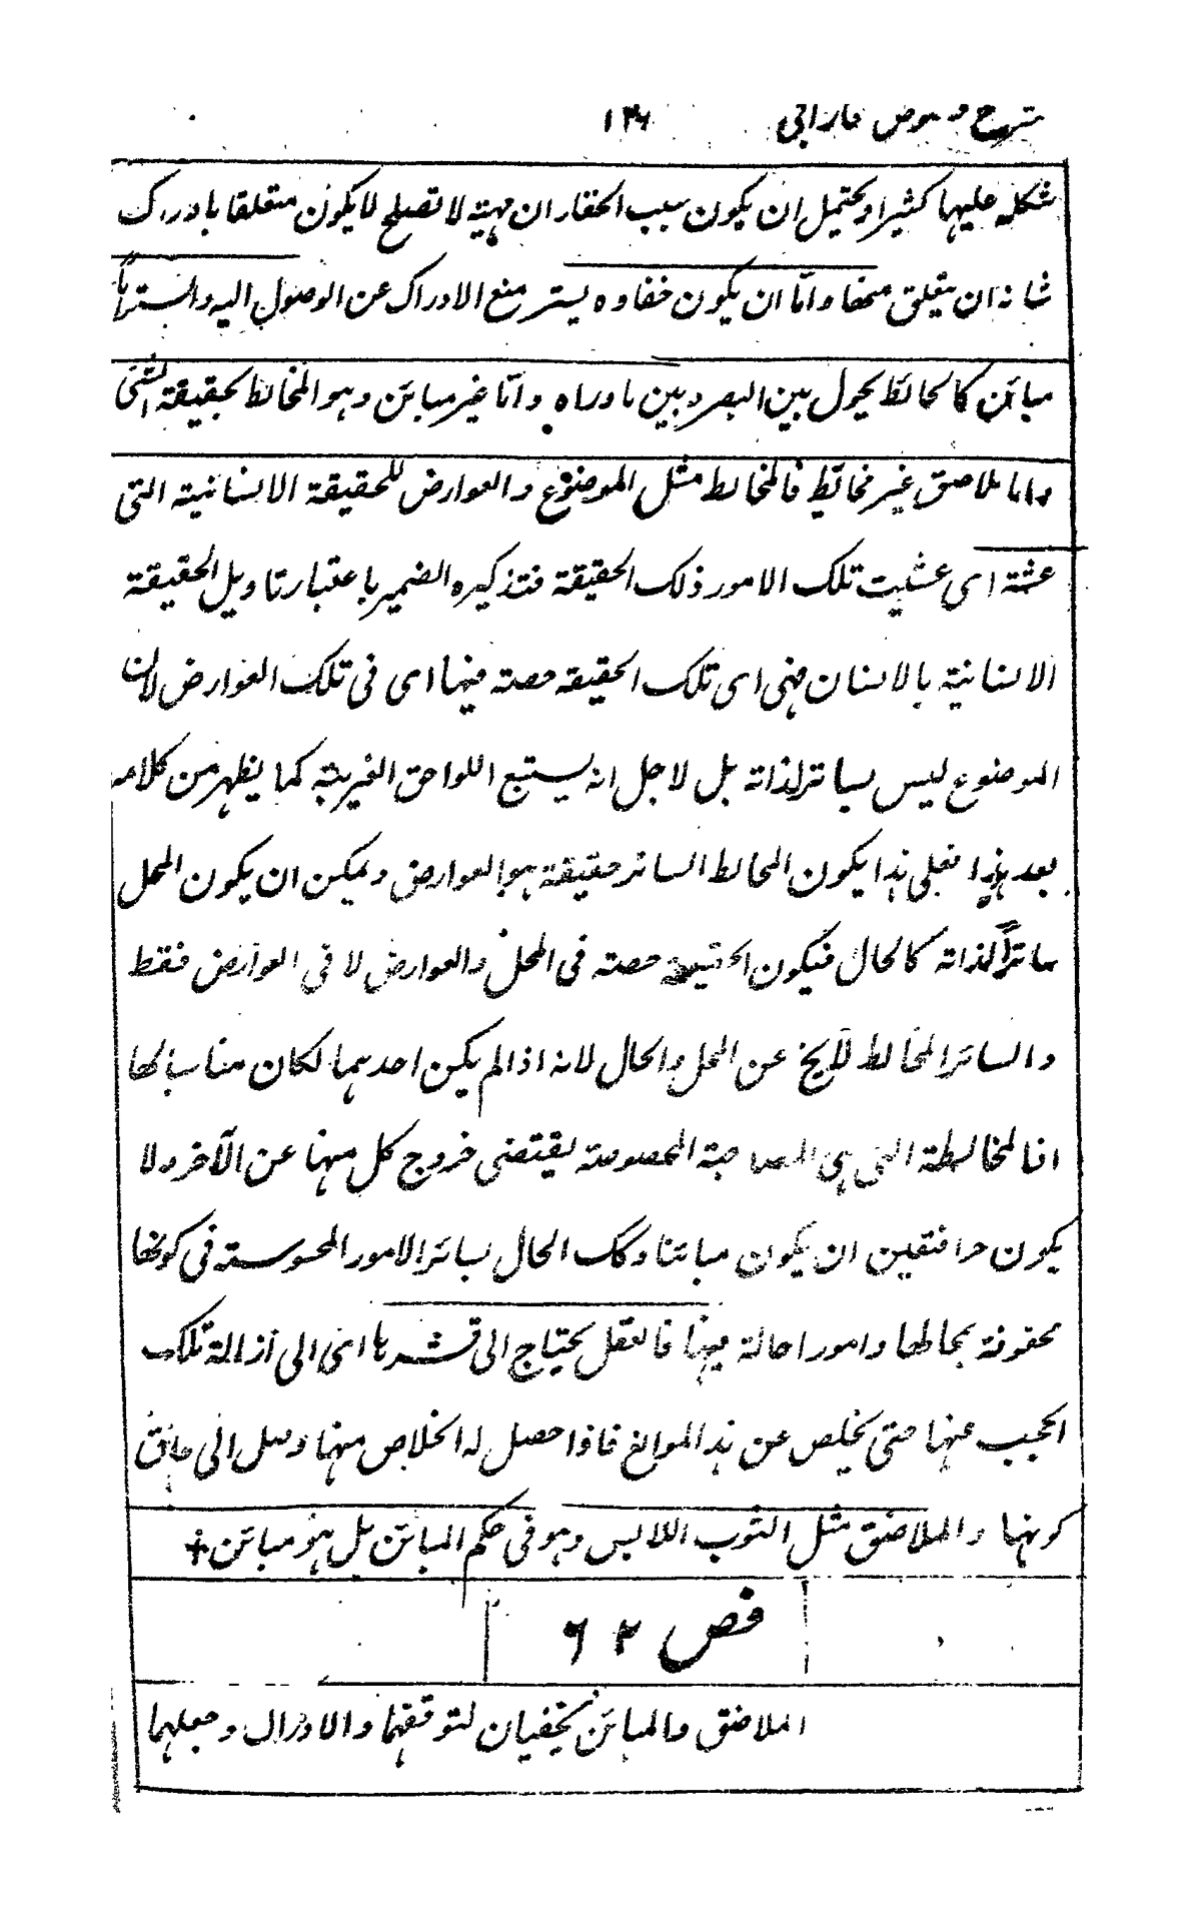 شرح فصوص فارابی ١٣٦
شكله عليها كثيرا ويحتمل ان يكون سبب الخفا ان مهيته لا تصلح لا يكون متعلقا بادراك
شانه ان يتعلق مخفا واما ان يكون خفاوه يستر منع الادراك عن الوصول اليه والستر اما
مبائن كالحائط يحول بين البصر وبين ماوراه واما غير مبائن وهو المخالط لحقيقة الشئ
واما ملاصق غير مخالط فالمخالط مثل الموضوع والعوارض للحقيقة الانسانية التى
غشته اى غشيت تلك الامور ذلك الحقيقة فتذكيره الضمير باعتبار تاويل الحقيقة
الانسانية بالانسان فهى اى تلك الحقيقه حصته فيها اى فى تلك العوارض لان
الموضوع ليس بساتر لذاته بل لاجل انه يستتبع اللواحق الغريبة كما يظهر من كلامه
بعد هذا فعلى هذا يكون المخالط الساتر حقيقة هو العوارض ويمكن ان يكون المحل
ساترا لذاته كالحال فيكون الحقيقة حصته فى المحل والعوارض لا فى العوارض فقط
والساتر المخالط لا يخ عن المحل والحال لانه اذا لم يكن احدهما لكان مناسبا لها
اذا المخالطة التى هى المصاحبة المخصوصة يقتضى خروج كل منهما عن الآخر ولا
يكون ان يكون مبائنا وكك الحال لسائر الامور المحسوسته فى كونها
محفوفة بحالها وامور احالة فيها فالعقل يحتاج الى قشرها اى الى ازالة تلك
الحجب عنها حتى يخلص عن هذا الموانع فاذا حصل له الخلاص منها وصل الى حاق
كونها والملاصق مثل الثوب اللابس وهو فى حكم المبائن بل هو مبائن +
فص ٦٢
الملاصق والمبائن يخفيان لتوقفهما والادراك وجعلهما